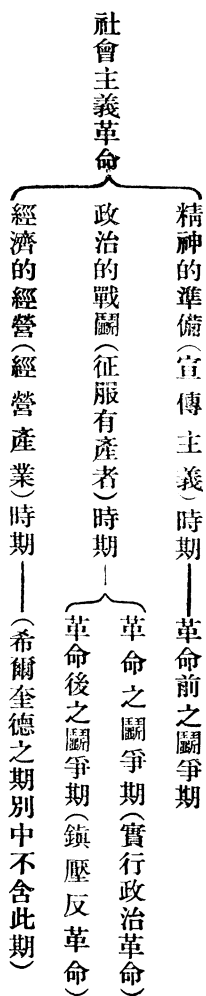 社會主義革命
精神的準備（宣傳主義）時期——革命前之鬭爭期
政治的戰鬭（征服有產者）時期——
革命之鬭爭期（實行政治革命）
革命後之鬭爭期（鎮壓反革命）
經濟的經營（經營產業）時期——（希爾奎德之期別中不含此期）